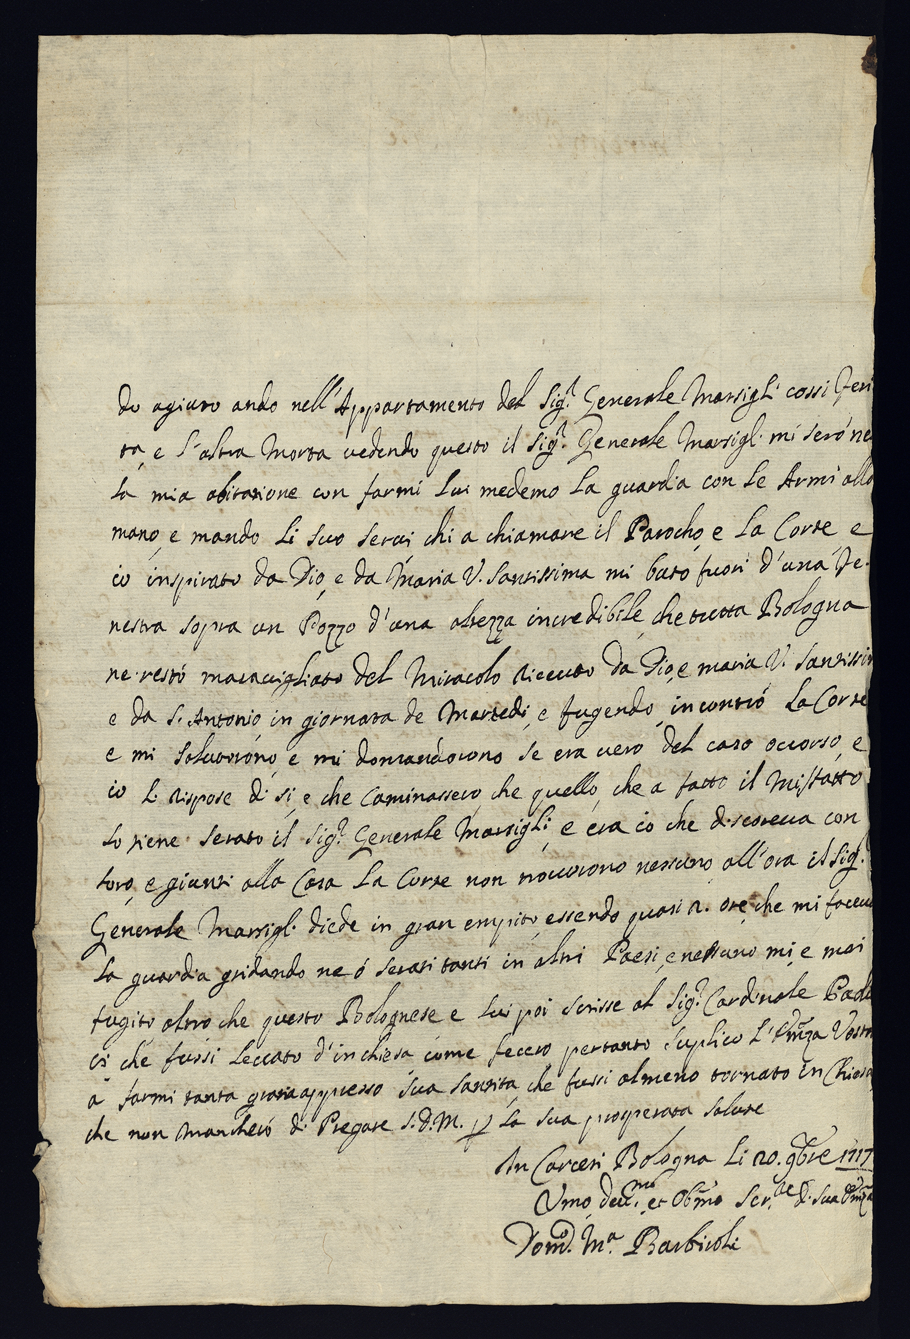 do agiuto ando nell'Appartamento del Sig.r Generale Marsigli cossi Feri
ta, e l'altra Morta vedendo questo il Sig.r Generale Marsigl. mi serò ne
la mia abitatione con farmi Lui medemo La guardia con le Armi alla
mano, e mando Li suo servi chi a chiamare il Parocho, e La Corte e
io inspirato da Dio, e da Maria V. Santissima mi butò fuori d'una Fe-
nestra sopra un Pozzo d'una altezza incredibile, che tutta Bologna
ne restò maravigliato del Miracolo riceuto da Dio, e maria V. Santissim
e da S. Antonio in giornata de Martedi, e fugendo, incontrò La Corte
e mi salutorono, e mi domandorono se era vero del caso occorso, e
io Li rispose di si, e che Caminassero, che quello, che a fatto il Misfatto
lo tiene serato il Sig.r Generale Marsigli, e era io che discoreva con
loro, e giunti alla Casa La Corte non trovorono nessuno all'ora il Sig.r
Generale Marsigl. diede in gran empito, essendo quasi 2. ore, che mi faceva
la guardia gridando ne ó serati tanti in altri Paesi, e nessuno mi, e mai
fugito altro che questo Bolognese e Lui poi scrisse al Sig.r Cardinale Padu
ci che fussi Leccato d'in chiesa come fecero pertanto Suplico L'Em̃za Vostra
a farmi tanta gratia appresso sua Santita, che fussi almeno tornato in Chiesa
che non Mancherò di Pregare S.D.M. per La sua prosperata salute
In Carceri Bologna Li 20. 9bre 1717
Vmo, deu.mo, et Obb.mo Ser.re di Sua Em̃za
Dom.o M.a Barbiroli